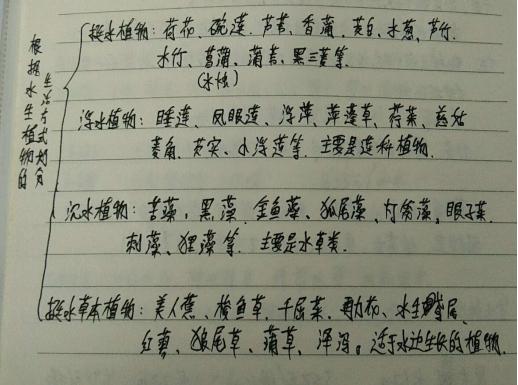 根据水生植物的
生活方式划分
挺水植物：荷花、碗莲、芦苇、香蒲、茭白、水葱、芦竹、
水竹、菖蒲、蒲苇、黑三菱等.
(水烛)
浮水植物：睡莲、凤眼莲、浮萍、萍蓬草、荇菜、慈姑
菱角、芡实、水浮莲等. 主要是莲科植物.
沉水植物：苦藻、黑藻、金鱼藻、狐尾藻、竹篱藻、眼子菜.
刺藻、狸藻等. 主要是水草类.
挺水草本植物：美人蕉、梭鱼草、千屈菜、再力花、水生鸢尾、
红蓼、狼尾草、蒲草、泽泻。适于水边生长的植物.